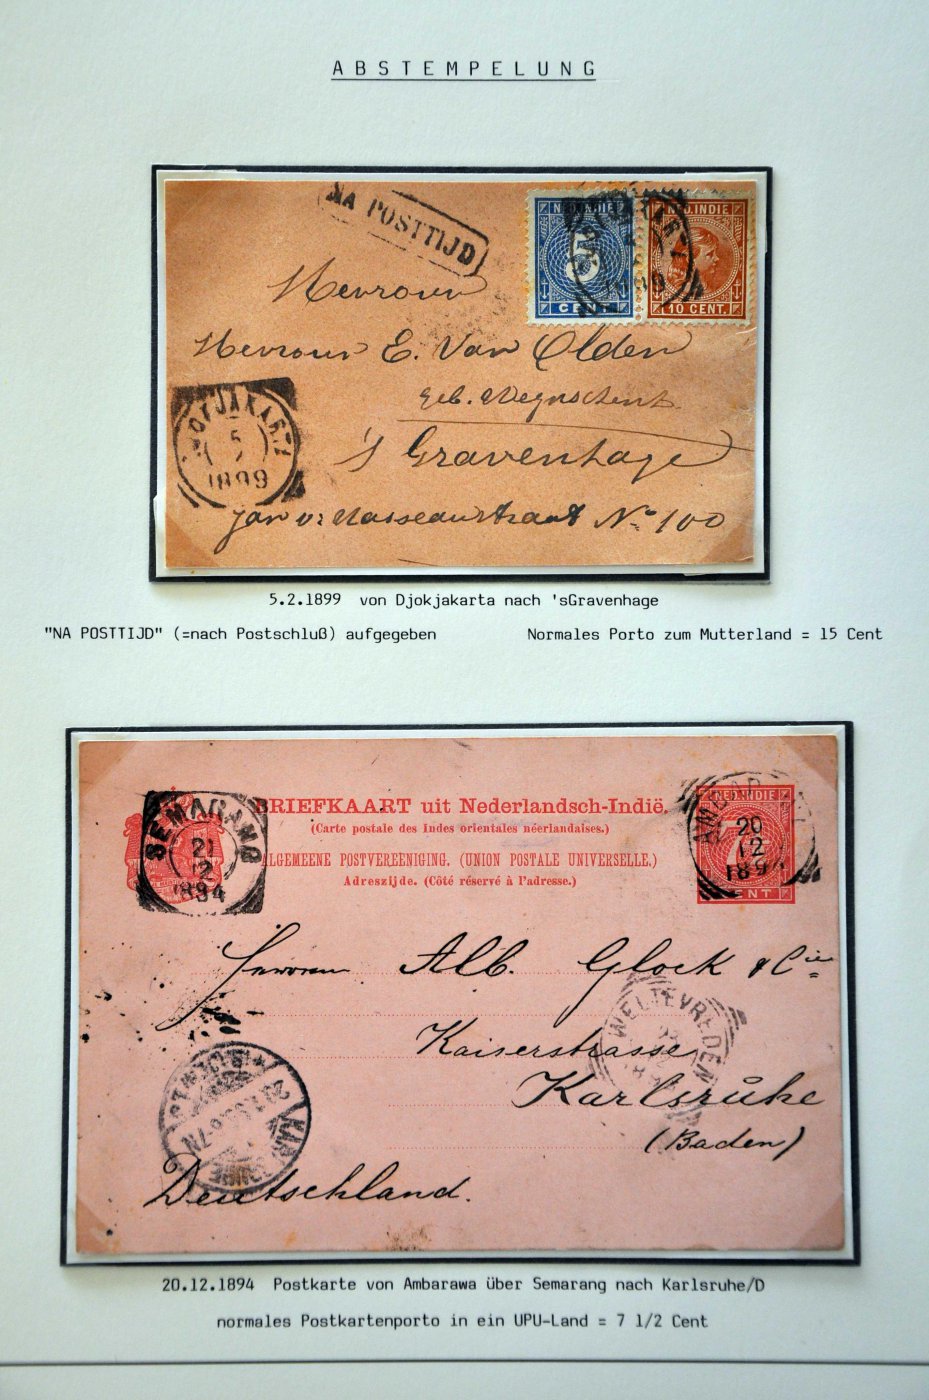 ABSTEMPELUNG
NA POSTTIJD
NED.INDIE
5
CENT
NED.INDIE
10 CENT.
1899
Mevrouw
Mevrouw E. Van Olden
geb.
's Gravenhage
Jan v. Nassaustraat No 100
5
2
1899
5.2.1899 von Djokjakarta nach 'sGravenhage
"NA POSTTIJD" (=nach Postschluß) aufgegeben Normales Porto zum Mutterland = 15 Cent
BRIEFKAART uit Nederlandsch-Indië.
(Carte postale des Indes orientales néerlandaises.)
ALGEMEENE POSTVEREENIGING. (UNION POSTALE UNIVERSELLE.)
Adreszijde. (Côté réservé à l'adresse.)
SEMARANG
21
12
1894
NED.INDIE
CENT
20
12
1894
Herren Alb. Glock & Cie
WELTEVREDEN
Kaiserstrasse
Karlsruhe
(Baden)
Deutschland.
20.12.1894 Postkarte von Ambarawa über Semarang nach Karlsruhe/D
normales Postkartenporto in ein UPU-Land = 7 1/2 Cent